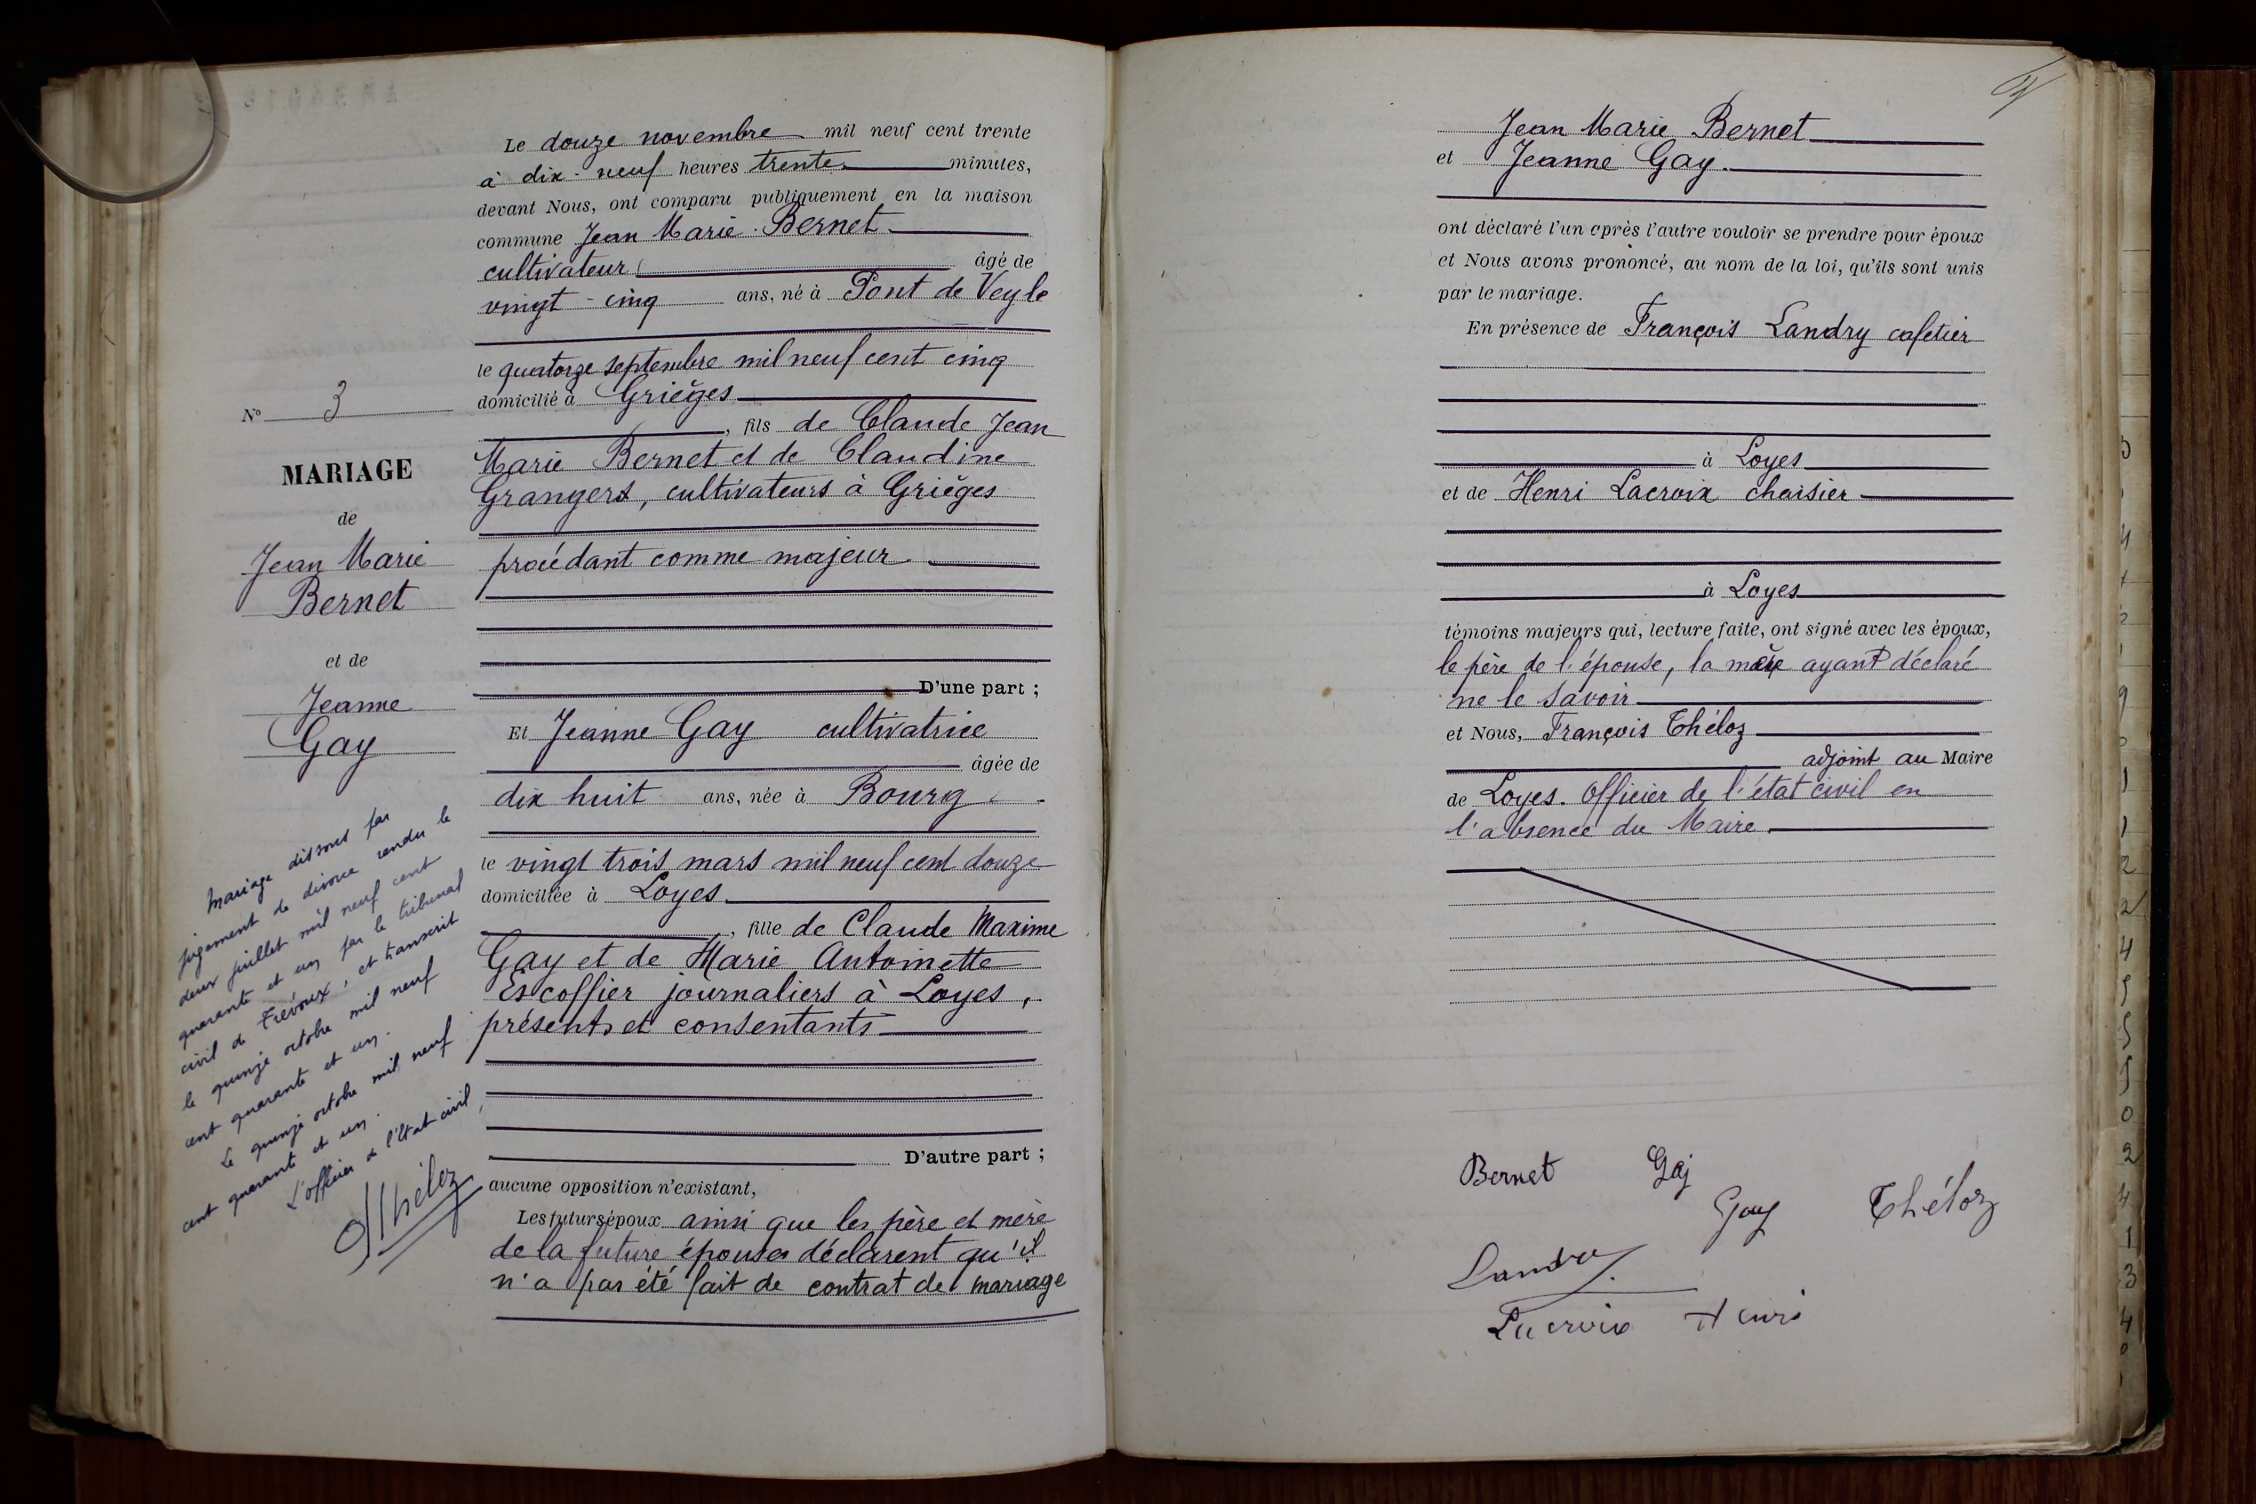 Le douze novembre mil neuf cent trente
à dix-neuf heures trente minutes,
devant Nous, ont comparu publiquement en la maison
commune Jean Marie Bernet
cultivateur âgé de
vingt-cinq ans, né à Pont de Veyle
le quatorze septembre mil neuf cent cinq
domicilié à Grièges
, fils de Claude Jean
Marie Bernet et de Claudine
Grangers, cultivateurs à Grièges
procédant comme majeur
D'une part ;
Et Jeanne Gay cultivatrice
âgée de
dix huit ans, née à Bourg
le vingt trois mars mil neuf cent douze
domiciliée à Loyes
, fille de Claude Maxime
Gay et de Marie Antoinette
Escoffier journaliers à Loyes,
présents et consentants
D'autre part ;
aucune opposition n'existant,
Les futurs époux ainsi que les père et mère
de la future épouse déclarent qu'il
n'a pas été fait de contrat de mariage
N° 3
MARIAGE
de
Jean Marie
Bernet
et de
Jeanne
Gay
Mariage dissous par
jugement de divorce rendu le
deux juillet mil neuf cent
quarante et un par le tribunal
civil de Trévoux, et transcrit
le quinze octobre mil neuf
cent quarante et un.
Le quinze octobre mil neuf
cent quarante et un.
L'officier de l'Etat civil,
Théloz
Jean Marie Bernet
et Jeanne Gay
ont déclaré l'un après l'autre vouloir se prendre pour époux
et Nous avons prononcé, au nom de la loi, qu'ils sont unis
par le mariage.
En présence de François Landry cafetier
à Loyes
et de Henri Lacroix chaisier
à Loyes
témoins majeurs qui, lecture faite, ont signé avec les époux,
le père de l'épouse, la mère ayant déclaré
ne le savoir
et Nous, François Théloz
adjoint au Maire
de Loyes. Officier de l'état civil en
l'absence du Maire.
Bernet Gay
Gay Théloz
Landry
Lacroix Henri